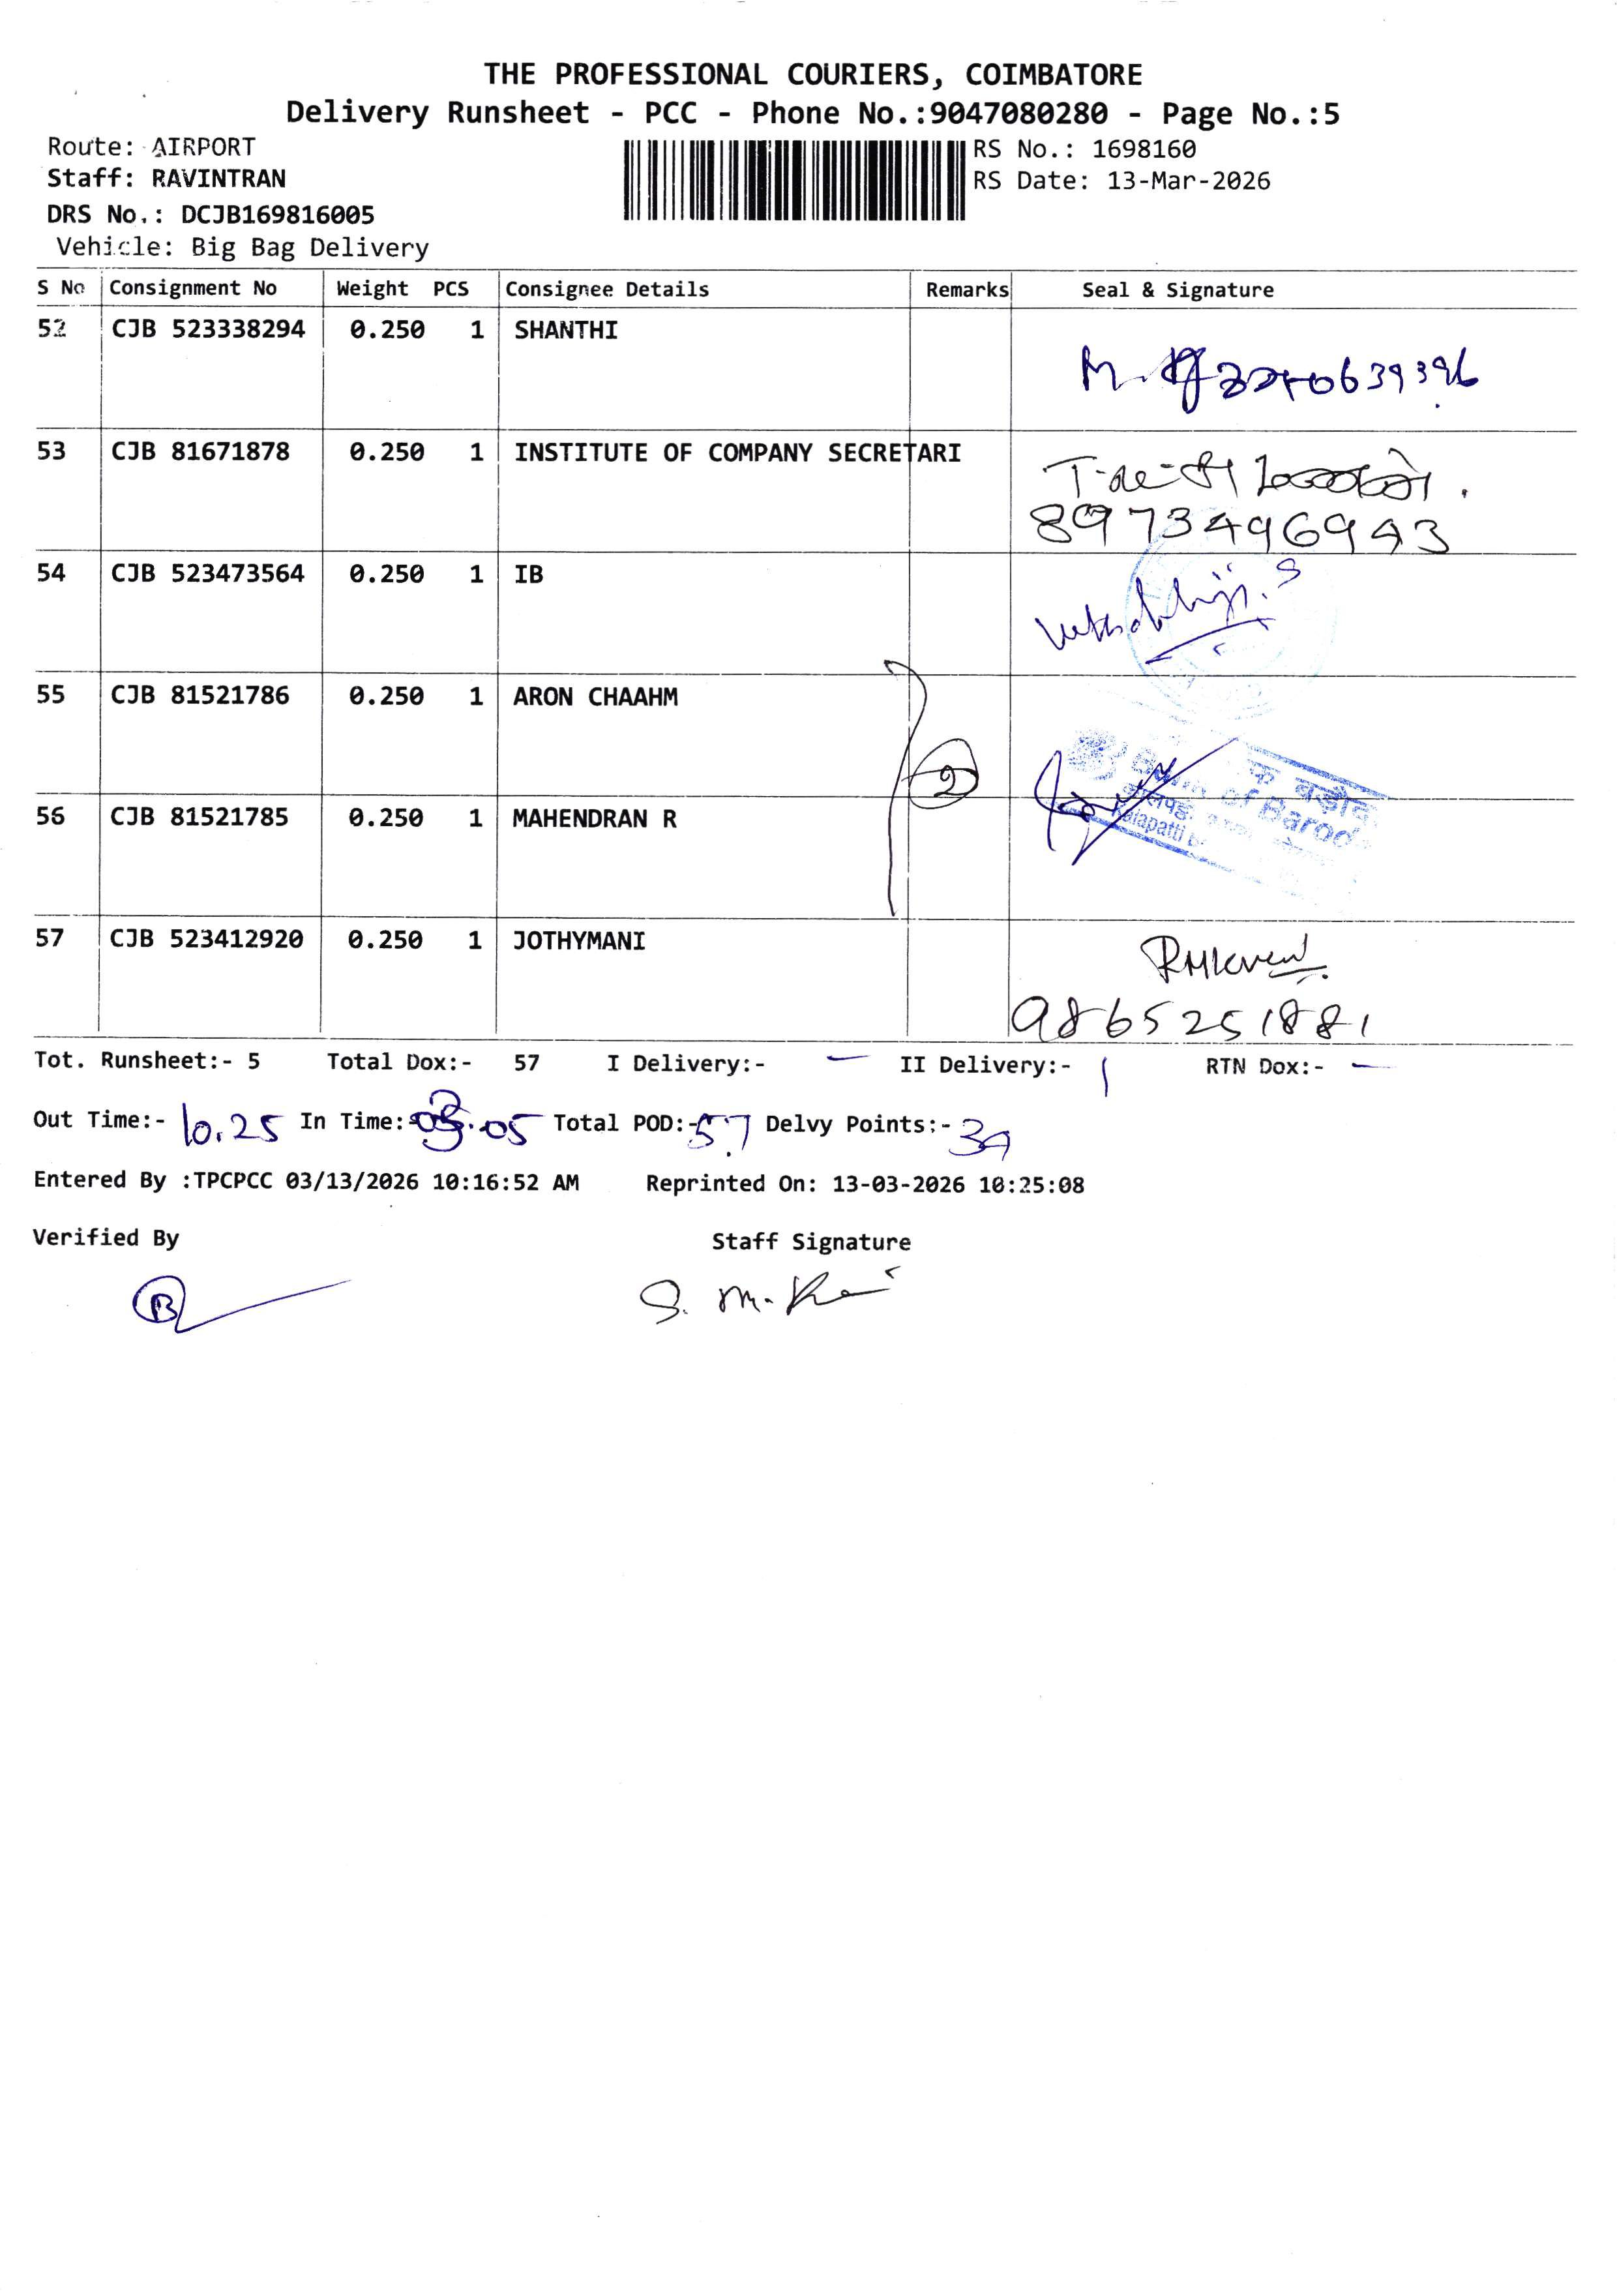 THE PROFESSIONAL COURIERS, COIMBATORE
Delivery Runsheet - PCC - Phone No.:9047080280 - Page No.:5
Route: AIRPORT
Staff: RAVINTRAN
DRS No.: DCJB169816005
Vehicle: Big Bag Delivery
RS No.: 1698160
RS Date: 13-Mar-2026
S No Consignment No Weight PCS Consignee Details Remarks Seal & Signature
52 CJB 523338294 0.250 1 SHANTHI
53 CJB 81671878 0.250 1 INSTITUTE OF COMPANY SECRETARI
8973496943
54 CJB 523473564 0.250 1 IB
55 CJB 81521786 0.250 1 ARON CHAAHM
2
Bank of Barod
56 CJB 81521785 0.250 1 MAHENDRAN R
57 CJB 523412920 0.250 1 JOTHYMANI
9865251881
Tot. Runsheet:- 5 Total Dox:- 57 I Delivery:- — II Delivery:- 1 RTN Dox:- —
Out Time:- 10.25 In Time: 05 Total POD:- 57 Delvy Points:- 39
Entered By :TPCPCC 03/13/2026 10:16:52 AM Reprinted On: 13-03-2026 10:25:08
Verified By Staff Signature